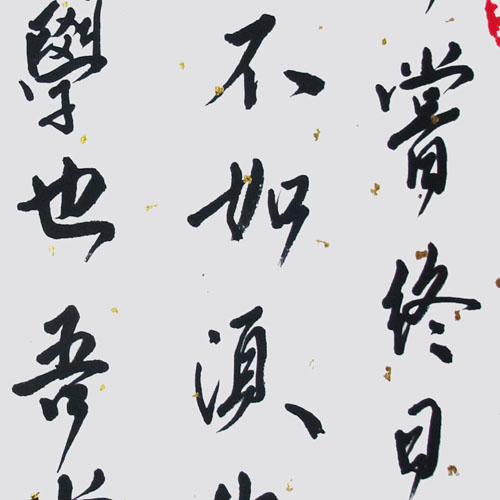 嘗終日
不如須
學也吾